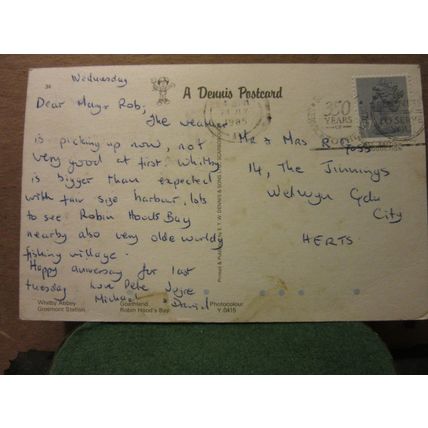 Wednesday
34
A Dennis Postcard
Dear May & Rob,
The weather
is picking up now, not
very good at first. Whitby
is bigger than expected
with fair size harbour, lots
to see Robin Hoods Bay
nearby also very olde worlde
fishing village.
Happy aniversary for last
tuesday Love Pete Joyce
Michael & David
Whitby Abbey
Grosmont Station
Goathland
Robin Hood's Bay
Photocolour
Y.0415
Printed & Published by E.T.W. DENNIS & SONS
1985
350
YEARS
TO SERVE
Mr & Mrs R
14, The Jinnings
Welwyn Gdn
City
HERTS